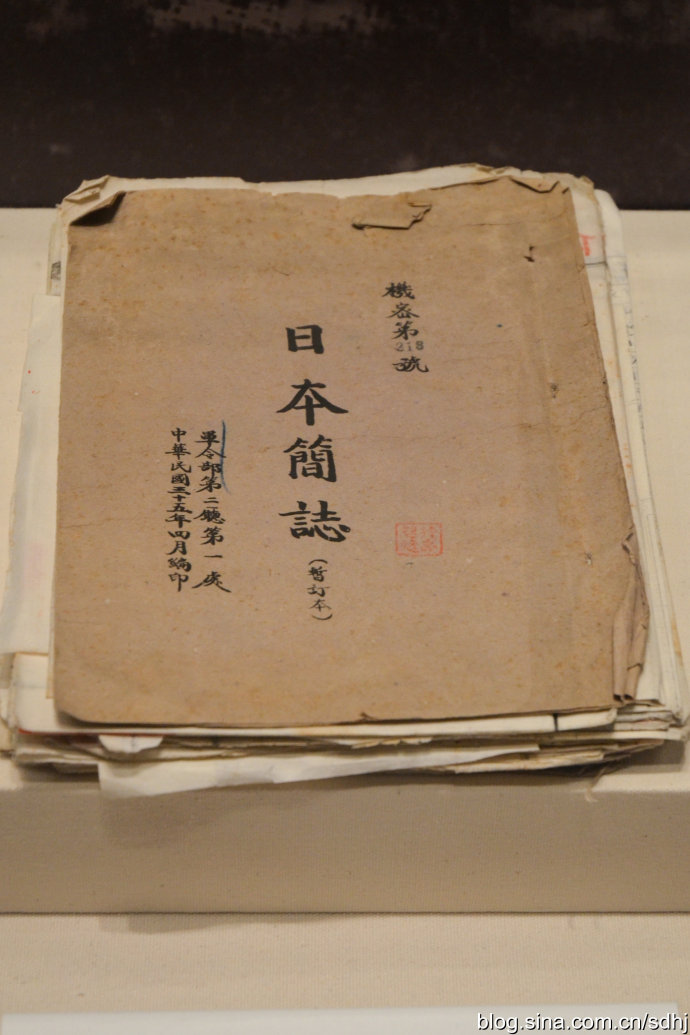 機密第218號
日本簡誌
(暫訂本)
軍令部第二廳第一處
中華民國三十五年四月編印
blog.sina.com.cn/sdhj